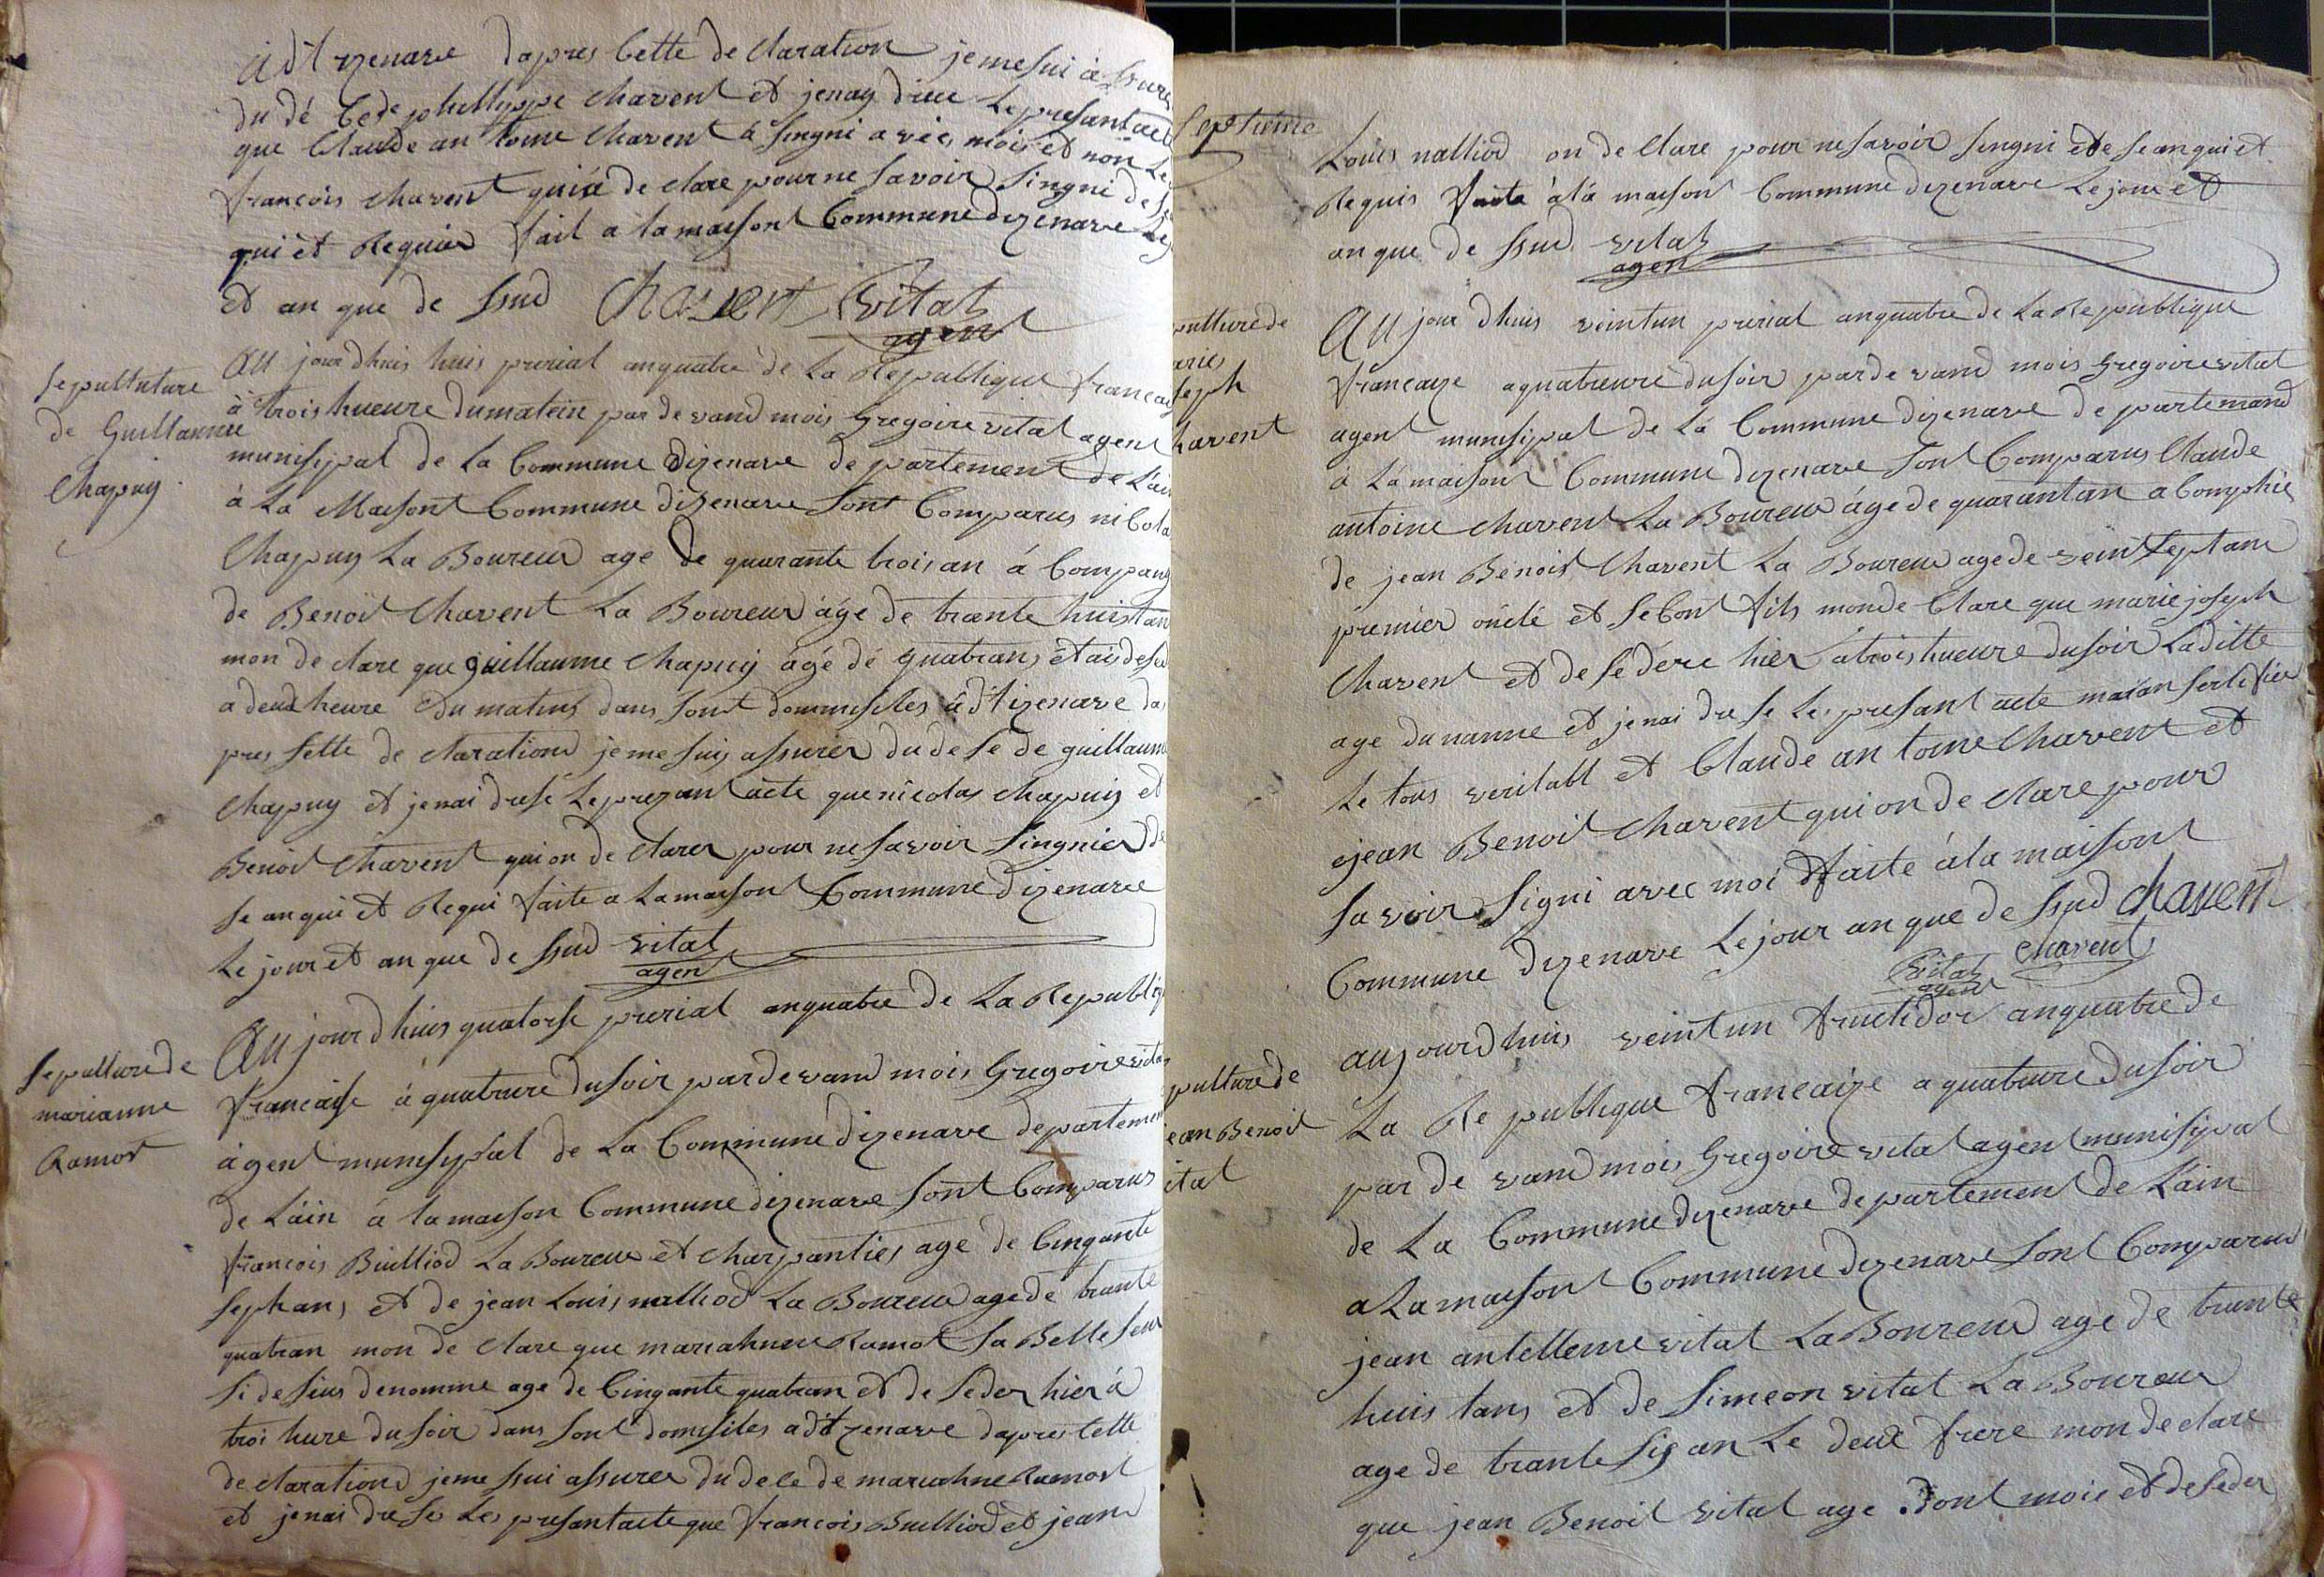 adit izenave dapres Cette de Claration jemesui à ssurer
du dé Cede phillyppe Chavent et jenay drece Le presant acte
que Claude an toine Chavent à singni avéc mois et non
françois Chavent quia de clare pour ne savoir Singni de
qui et Requier fait a la maison Commune dizenave
et an que de ssud Chavent Vital
agent
Sepulltuture
de Guillaume
Chapuy
Au jour dhuis huis prerial anquatre de La Republique francai
à trois hueure dumatein par de vand mois Gregoire vital agent
munisipal de La Commune dizenave de partement de Lain
à La Maisont Commune dizenave Sont Comparus nicola
Chapuy La Boureur age de quarante trois an à Company
de Benoit Chavent La Boureur àge de trante huis tan
mon de clare que guillaume Chapuy àgé dé quatrans étais desed
a deux heure du matins dans sont dommisiles àdit izenave da
pres sette de claration jeme suis assurer du de se de guillaume
Chapuy et jenai drese Le prezant acte que nicolas Chapuis et
Benoit Chavent qui on de clarer pour ne savoir Singnier de
se an qui et Requi faite a La maison Commune dizenave
Le jour et an que de ssud vital
agent
Sepulture de
marianne
Ramot
Au jour dhuis quatorse prerial anquatre de La Republiq
francaise à quatrure du soir par de vand mois Gregoire vital
àgent munisipal de La Commune dizenave departement
de Lain à la maison Commune dizenave Sont Comparus
francois Buillod La Boureur et Charpantier age de Cinqante
sephans et de jean Louis nalliod La Boureur age de trante
quatran mon de clare que mariahnne Ramot sa Belle seur
si desius denomme age de Cinqante quatran et de seder hier à
troi hure du soir dans sont domisiles adit izenave dapres Cette
de claration jeme ssui assurer du dece de mariahne Ramot
et jenai drese Les presant acte que francois Builliod et jean
Septieme
Louis nalliod on de Clare pour ne savoir singni et de se an qui et
Requis faite àla maison Commune dizenave Le jour et
an que de ssud vital
agen
pulture de
arie
seph
havent
Au jour dhuis veintun prerial anquatre de La Republique
francaize aquatreure du soir par de vand mois Gregoire vital
agent munisipal de La Commune dizenave de partemand
à La maison Commune dizenave sont Comparus Claude
antoine Chavent La Boureur àge de quarantan a Comphie
de jean Benoit Chavent La Boureur age de vein septans
premier oncle et seCont fils mon de Clare que marie joseph
Chavent et de sedére hier àtrois hueure du soir Laditte
age dunanne et jenai drese Les presant acte
Le tous veritabl et Claude an toine Chavent et
jean Benoit Chavent qui on de clare pour
savoir Signi avec moi faite àla maison
Commune dizenave Le jour an que de ssud Chavent
Vital Chavent
agent
pulture de
ean Benoit
ital
aujourdhuis veintun fructidor anquatre de
La Re publique francaize a quatrure du soir
par de vand mois Gregoire vital agent munisipal
de La Commune dizenave departement de Lain
a La maison Commune dizenave sont Comparus
jean antelleme vital La Boureur age de trante
huis tans et de Simeon vital La Boureur
age de trante sis an Le deux frere mon de clare
que jean Benoit vital age dont mois et de seder